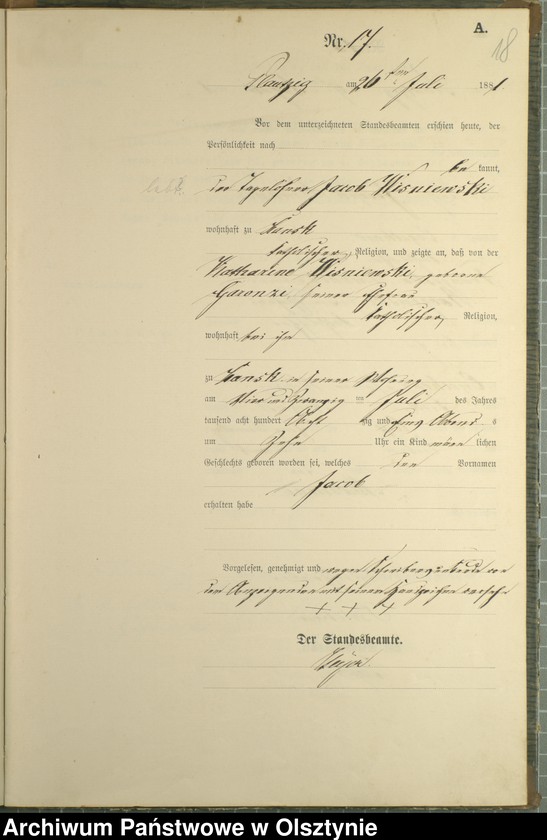 A.
18
Nr. 17.
Plautzig am 26 ten Juli 1881.
Vor dem unterzeichneten Standesbeamten erschien heute, der
Persönlichkeit nach
be kannt,
der Tagelöhner Jacob Wisniewski
wohnhaft zu Lansk
katholischer Religion, und zeigte an, daß von der
Katharine Wisniewski, geborene
Garonzi, seiner Ehefrau
katholischer Religion,
wohnhaft bei ihm
zu Lansk in seiner Wohnung
am Vier und Zwanzig ten Juli des Jahres
tausend acht hundert Acht zig und Eins Abends
um Zehn Uhr ein Kind männ lichen
Geschlechts geboren worden sei, welches den Vornamen
Jacob
erhalten habe
Vorgelesen, genehmigt und wegen Schreibensunkunde von
dem Anzeigenden mit seinem Handzeichen versehen
+ + +
Der Standesbeamte.
Archiwum Państwowe w Olsztynie